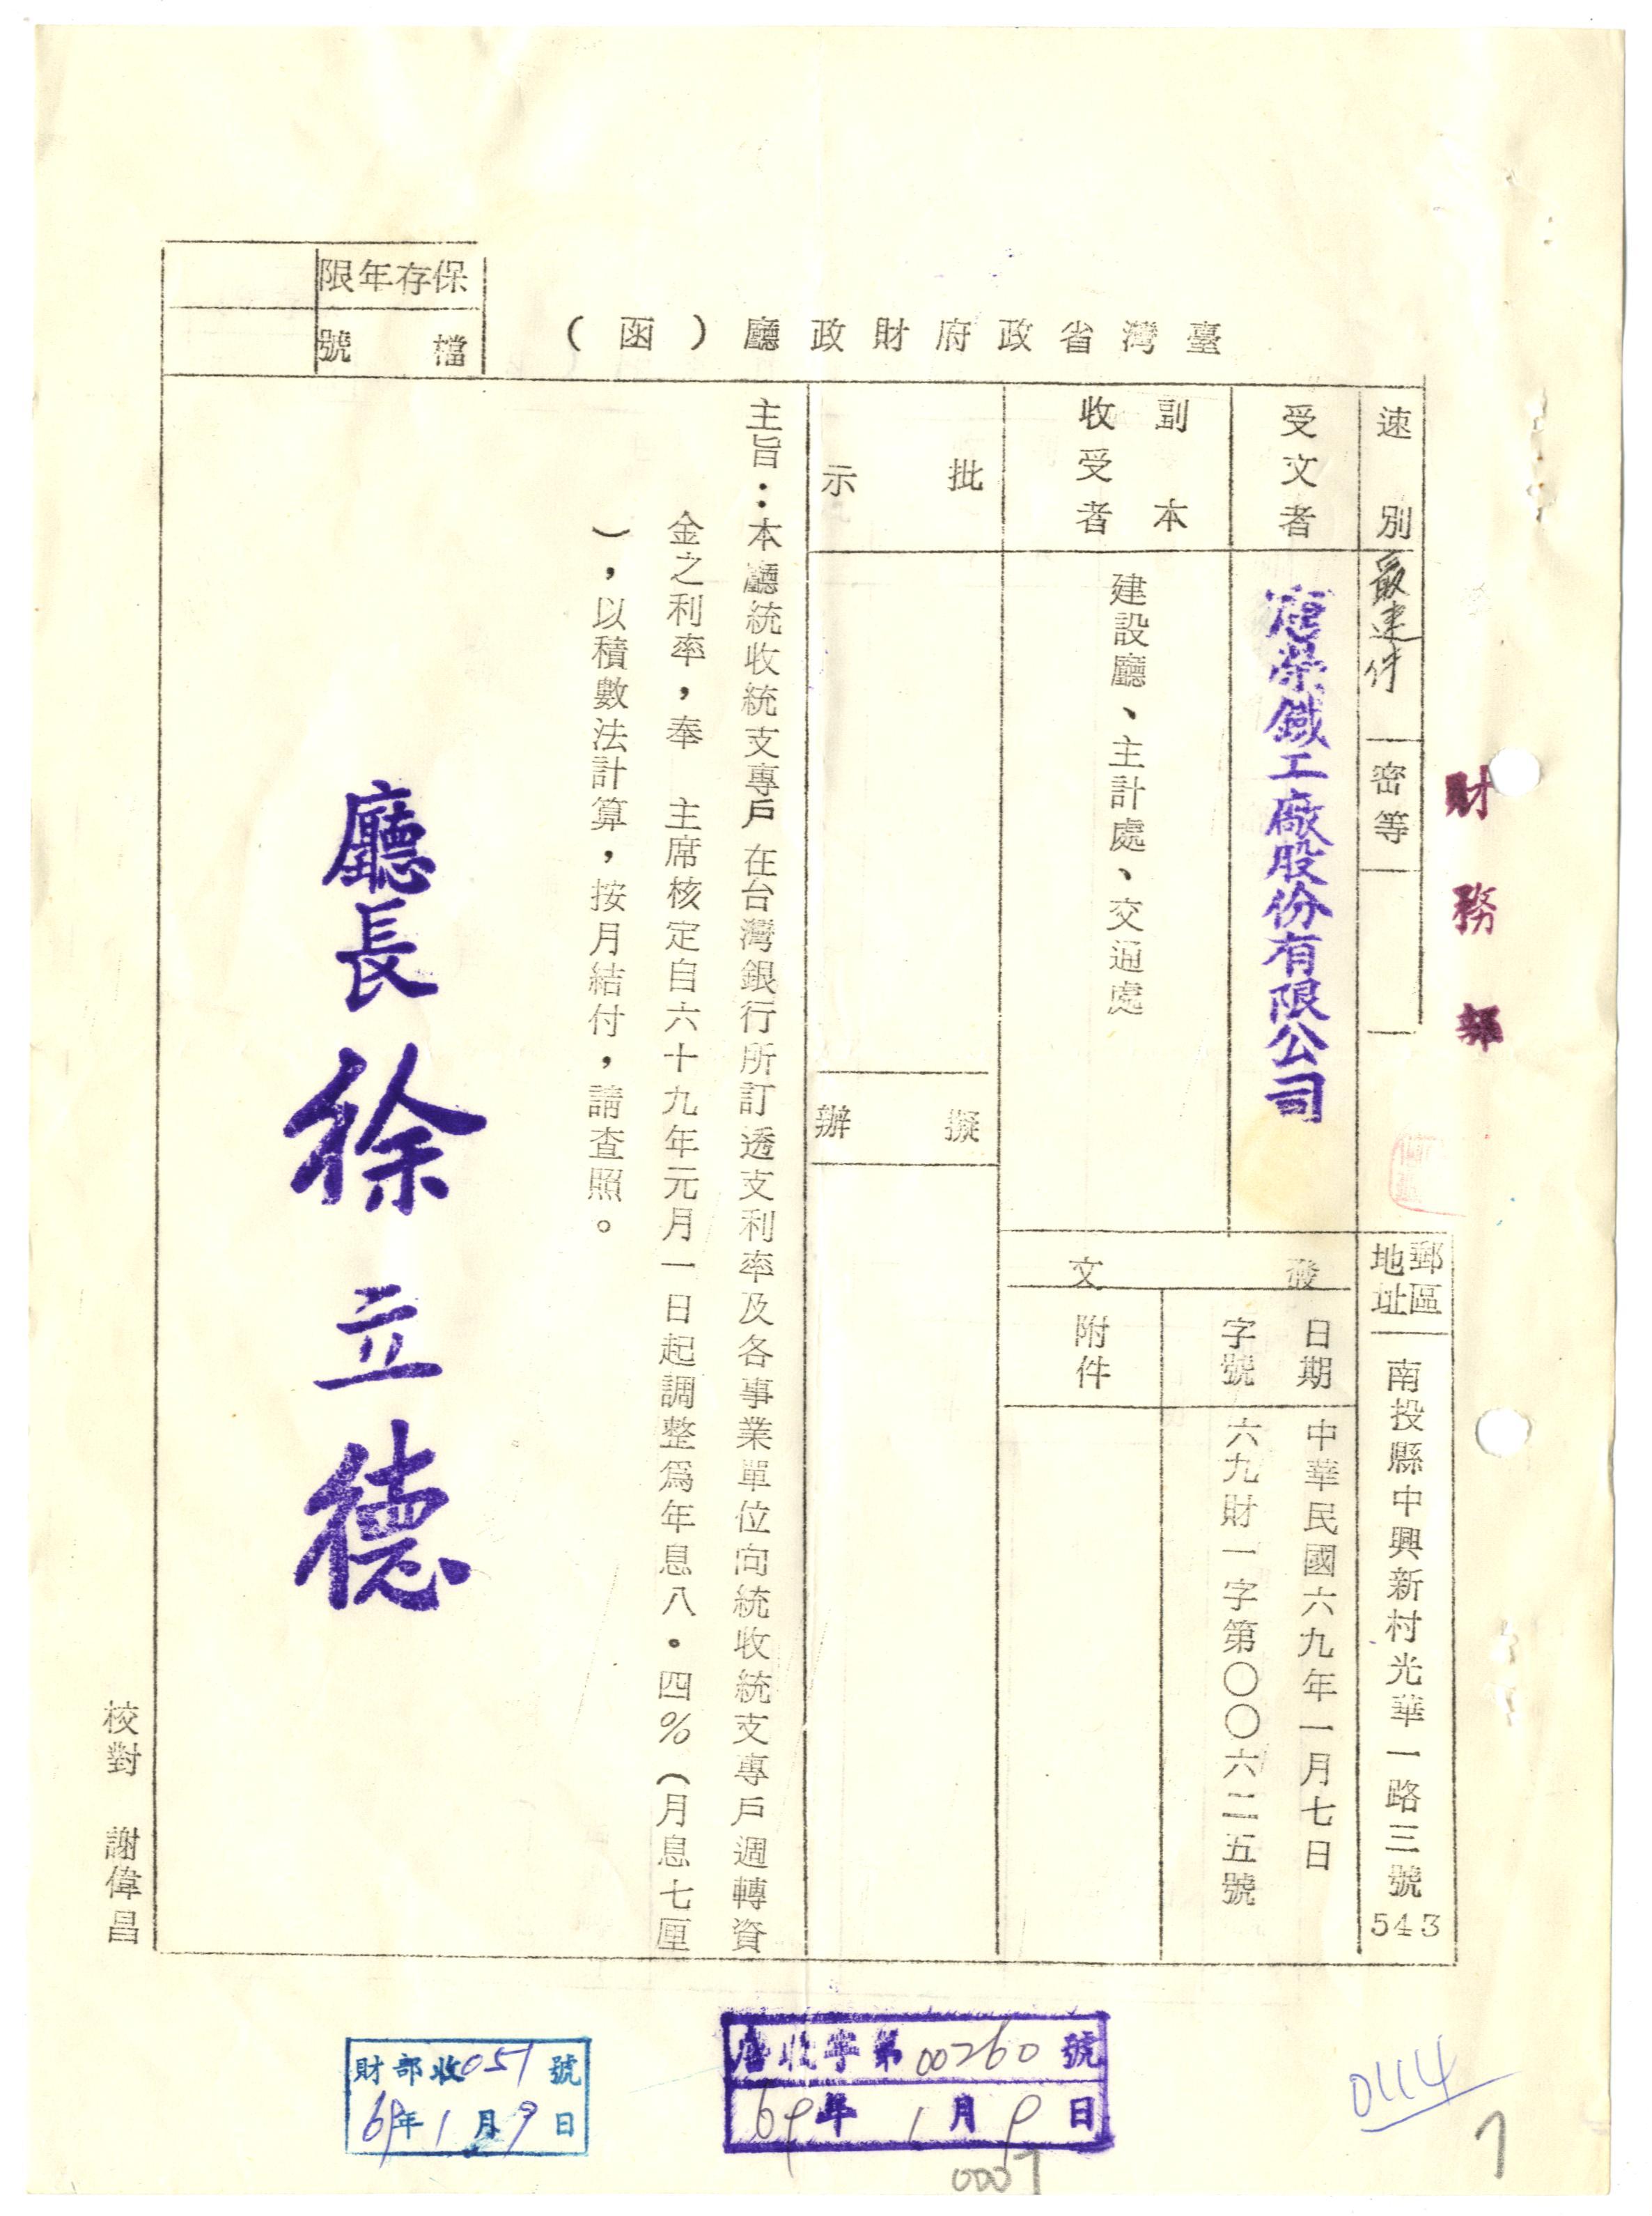 臺灣省政府財政廳（函）
保存年限
檔號
財務部
速別
最速件
密等
郵區
地址
南投縣中興新村光華一路三號
543
受文者
唐榮鐵工廠股份有限公司
副本
收受者
建設廳、主計處、交通處
發文
日期
中華民國六九年一月七日
字號
六九財一字第〇〇六二五號
附件
批示
擬辦
主旨：本廳統收統支專戶在台灣銀行所訂透支利率及各事業單位向統收統支專戶週轉資
金之利率，奉　主席核定自六十九年元月一日起調整為年息八．四%（月息七厘
），以積數法計算，按月結付，請查照。
廳長徐立德
校對　謝偉昌
唐收字第00260號
69年1月9日
財部收051號
69年1月9日
0114
7
0007